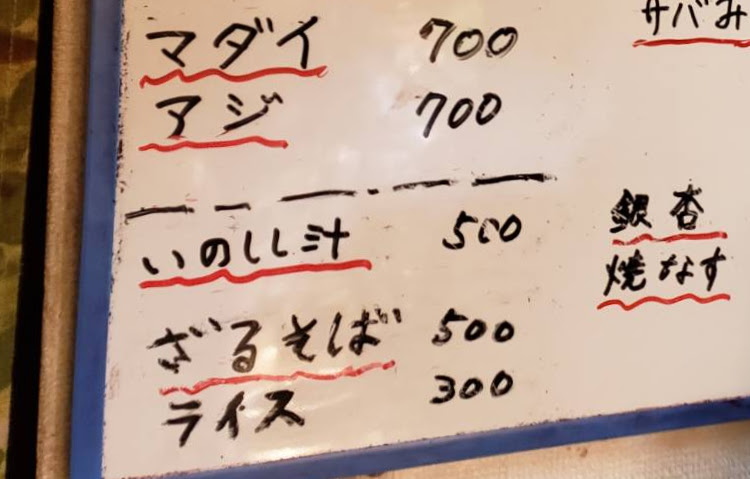 マダイ 700
アジ 700
いのしし汁 500
ざるそば 500
ライス 300
サバみ
銀杏
焼なす